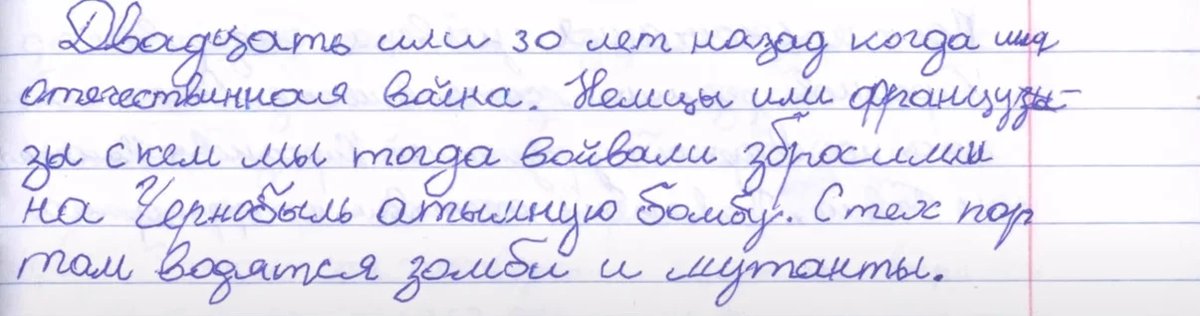 Двадцать или 30 лет назад когда шла
отечествинная война. Немцы или французы-
зы с кем мы тогда войвали збросили
на Чернобыль атымную бомбу. С тех пор
там водятся зомби и мутанты.